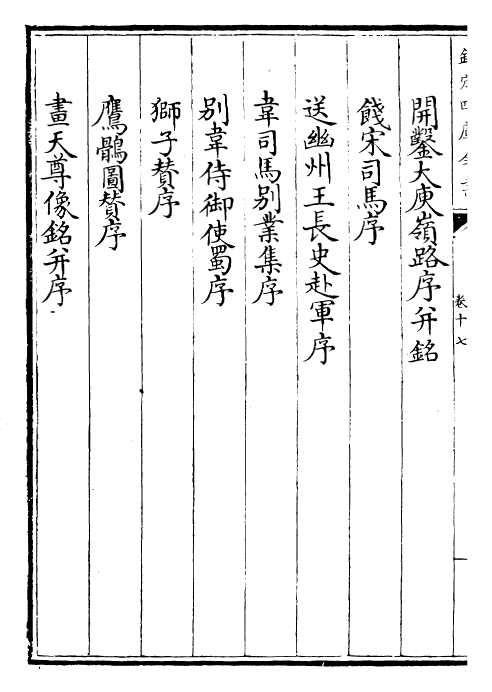 欽定四庫全書
卷十七
開鑿大庾嶺路序并銘
餞宋司馬序
送幽州王長史赴軍序
韋司馬别業集序
别韋侍御使蜀序
獅子賛序
鷹鶻圖賛序
畫天尊像銘并序